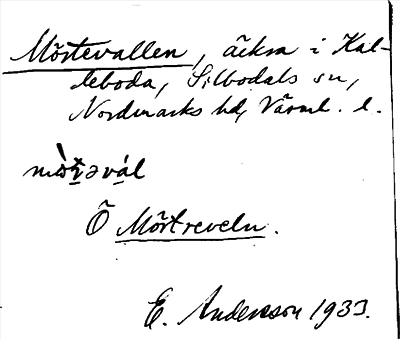 Mörtevallen, åkra i Kal-
leboda, Silbodals sn,
Nordmarks hd, Värml. l.
Ö Mörtreveln.
E. Andersson 1933.